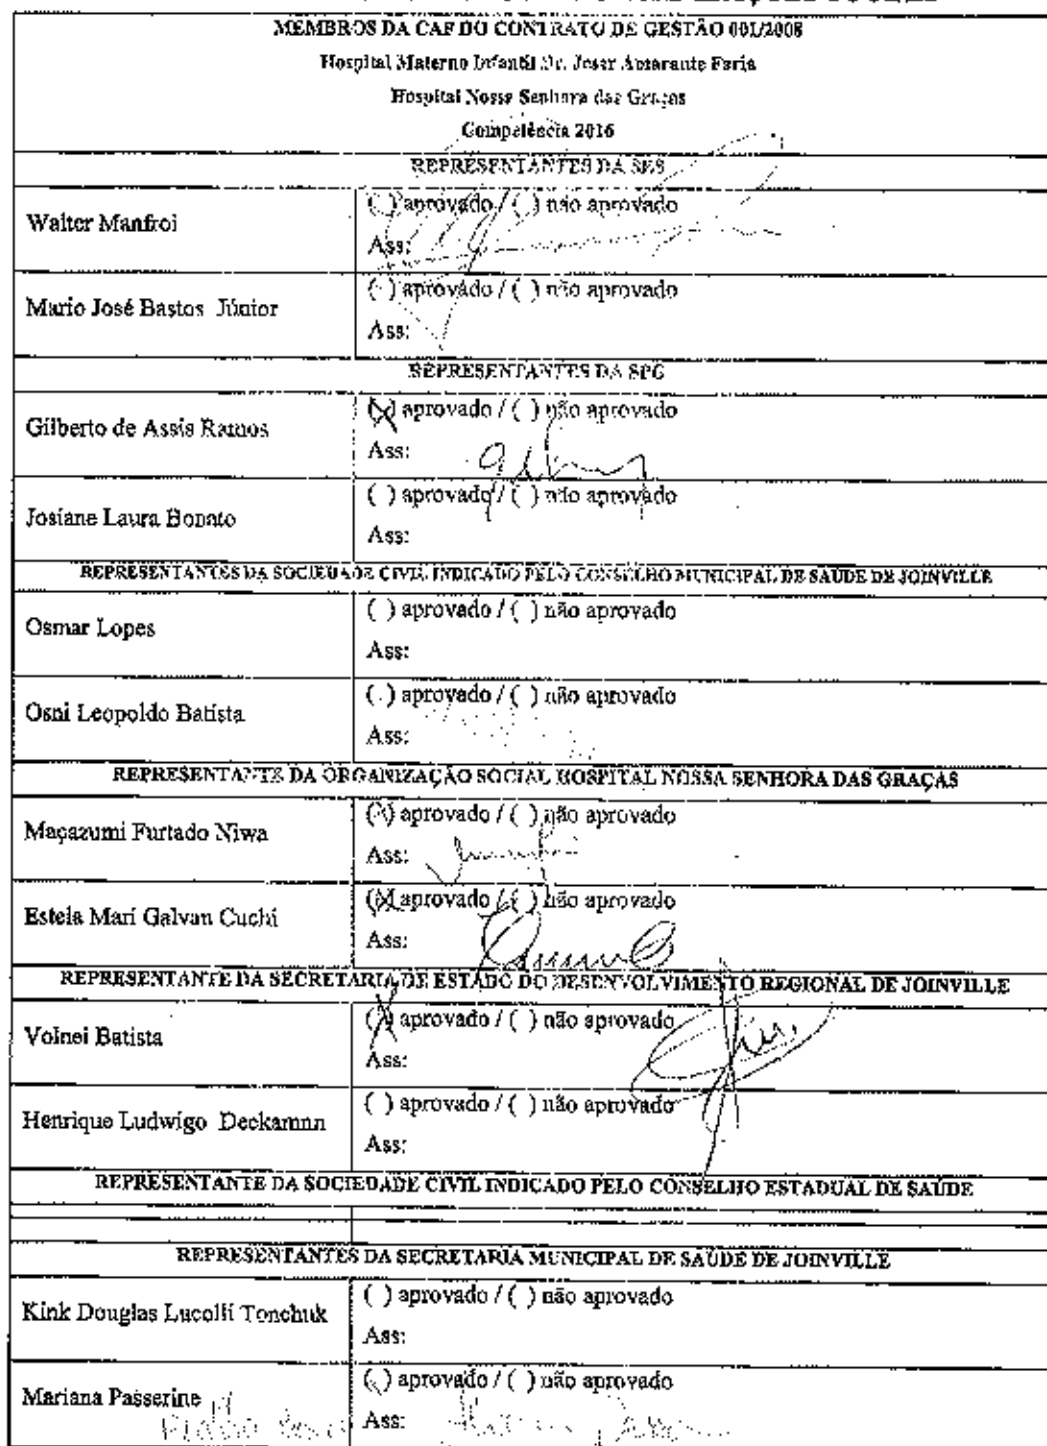 MEMBROS DA CAF DO CONTRATO DE GESTÃO 001/2008
Hospital Materno Infantil Dr. Jeser Amarante Faria
Hospital Nossa Senhora das Graças
Competência 2016
REPRESENTANTES DA SES
Walter Manfroi
( ) aprovado / ( ) não aprovado
Ass:
Mario José Bastos Júnior
( ) aprovado / ( ) não aprovado
Ass:
REPRESENTANTES DA SPG
Gilberto de Assis Ramos
(X) aprovado / ( ) não aprovado
Ass:
Josiane Laura Bonato
( ) aprovado / ( ) não aprovado
Ass:
REPRESENTANTES DA SOCIEDADE CIVIL INDICADO PELO CONSELHO MUNICIPAL DE SAÚDE DE JOINVILLE
Osmar Lopes
( ) aprovado / ( ) não aprovado
Ass:
Osni Leopoldo Batista
( ) aprovado / ( ) não aprovado
Ass:
REPRESENTANTE DA ORGANIZAÇÃO SOCIAL HOSPITAL NOSSA SENHORA DAS GRAÇAS
Maçazumi Furtado Niwa
(X) aprovado / ( ) não aprovado
Ass:
Estela Mari Galvan Cuchi
(X) aprovado / ( ) não aprovado
Ass:
REPRESENTANTE DA SECRETARIA DE ESTADO DO DESENVOLVIMENTO REGIONAL DE JOINVILLE
Volnei Batista
(X) aprovado / ( ) não aprovado
Ass:
Henrique Ludwigo Deckamnn
( ) aprovado / ( ) não aprovado
Ass:
REPRESENTANTE DA SOCIEDADE CIVIL INDICADO PELO CONSELHO ESTADUAL DE SAÚDE
REPRESENTANTES DA SECRETARIA MUNICIPAL DE SAÚDE DE JOINVILLE
Kink Douglas Lucolli Tonchuk
( ) aprovado / ( ) não aprovado
Ass:
Mariana Passerine
( ) aprovado / ( ) não aprovado
Ass: